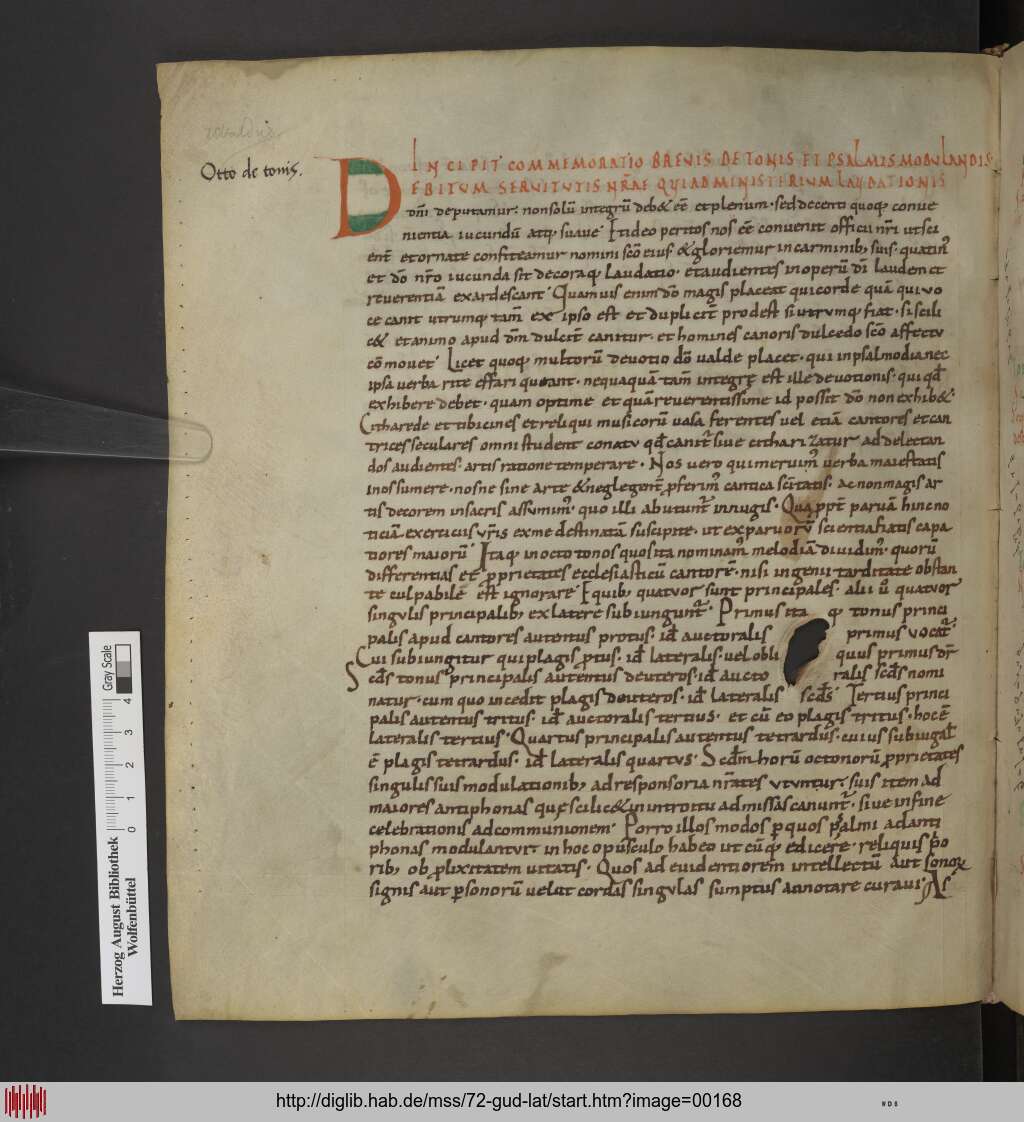 Otto de tonis.
INCIPIT COMMEMORATIO BREVIS DE TONIS ET PSALMIS MODULANDIS
DEBITVM SERVITVTIS NR̅AE QVI AD MINISTERIVM LAVDATIONIS
dn̅i deputamur. non solu̅ integru̅ deb& ee̅ et plenum. sed decenti quoq; conue
nientia iucundu̅ atq; suaue. Et ideo peritos nos ee̅ conuenit officii nr̅i ut sci
ent̅ et ornate confiteamur nomini sc̅o eius & gloriemur in carminib; suis. quatin̅
et do̅ nr̅o iucunda sit decoraq; laudatio. et audientes in operu̅ di̅ laudem et
reuerentia̅ exardescant. Quamuis enim do̅ magis placeat qui corde qua̅ qui uo
ce canit utrumq; tam̅ ex ipso est et duplicit̅ prodest si utrumq; fiat. si scili
c& et animo apud dm̅ dulcit̅ canitur. et homines canoris dulcedo sc̅o affectu
co̅mouet. Licet quoq; multoru̅ deuotio do̅ ualde placet. qui in psalmodia nec
ipsa uerba rite effari queant. nequaqua̅ tam̅ integre̜ est ille deuotionis. qui qd̅
exhibere debet. quam optime et qua̅ reuerentissime id possit do̅ non exhib&.
Citharede et tibicines et reliqui musicoru̅ uasa ferentes uel etia̅ cantores et can
trices seculares omni student conatu qd̅ canit̅ siue citharizatur ad delectan
dos audientes. artis ratione temperare. Nos uero qui meruim̅ uerba maiestatis
in os sumere. nosne sine arte & neglegent̅ pferim̅ cantica sc̅itatis. ac non magis ar
tis decorem in sacris assumim̅. quo illi abutunt̅ in nugis. Qua ppt̅ parua̅ hinc no
ticia̅ exercitiis ur̅is ex me destinata̅ suscipite. ut ex paruoru̅ scientia fiatis capa
tiores maioru̅. Itaq; in octo tonos quos ita nominam̅ melodia̅ diuidim̅. quoru̅
differentias et pprietates ecclesiasticu̅ cantore̅. nisi ingenii tarditate obstan
te culpabile est ignorare. E quib; quatuor sunt principales. alii u̅ quatuor
singulis principalib; ex latere subiungunt̅. Primus ita q; tonus princi
palis apud cantores autentus protus. id̅ auctoralis primus uocat̅.
Cui subiungitur qui plagis ptus. id̅ lateralis. uel obli quus primus dr̅
Scd̅s tonus principalis autentus deuteros. id̅ aucto ralis scd̅s nomi
natur. cum quo incedit plagis deuteros. id̅ lateralis scd̅s. Tertius princi
palis autentus tritus. id̅ auctoralis tertius. et cu̅ eo plagis tritus. hoc e̅
lateralis tertius. Quartus principalis autentus tetrardus. cuius subiugal̅
e̅ plagis tetrardus. id̅ lateralis quartus. Scd̅m horu̅ octonoru̅ pprietates
singulis suis modulationib; ad responsoria nr̅ates utuntur. suis item ad
maiores antiphonas que̜ scilic& in introitu ad missas canunt̅. siue in fine
celebrationis ad communionem. Porro illos modos p quos psalmi ad anti
phonas modulantur. in hoc opusculo habeo utcu̅q; edicere. reliquis prio
rib; ob plixitatem uitatis. Quos ad euidentiorem intellectu̅ aut sonoꝝ
signis aut psonoru̅ uelut cordas singulas sumptus annotare curaui. As
Herzog August Bibliothek
Wolfenbüttel
Gray Scale
0 1 2 3 4
http://diglib.hab.de/mss/72-gud-lat/start.htm?image=00168